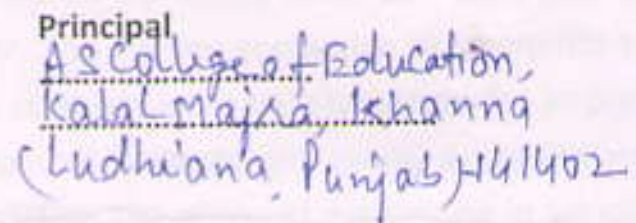 Principal
A S College of Education,
Kalal Majra, Khanna
(Ludhiana, Punjab) 141402